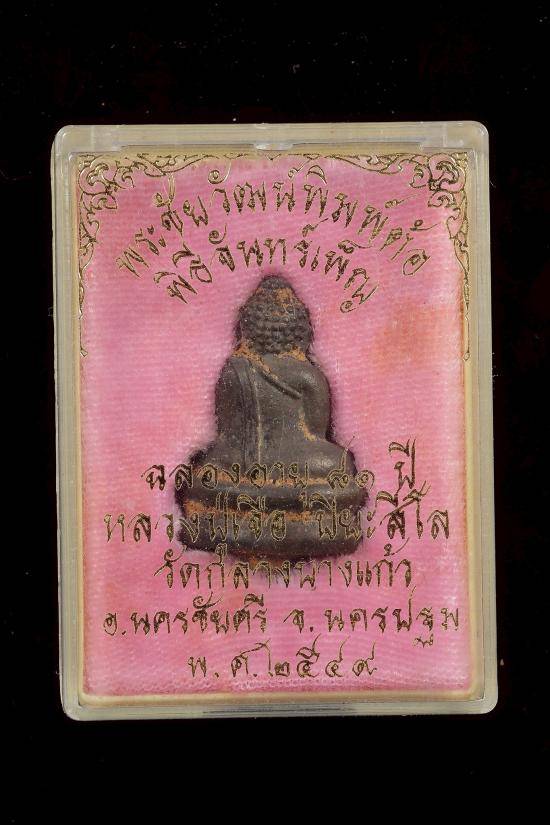 พระชัยวัฒน์พิมพ์ต้อ
พิธีจันทร์เพ็ญ
ฉลองอายุ ๘๑ ปี
หลวงปู่เจือ ปิยะสีโล
วัดกลางบางแก้ว
อ.นครชัยศรี จ.นครปฐม
พ.ศ.๒๕๔๙